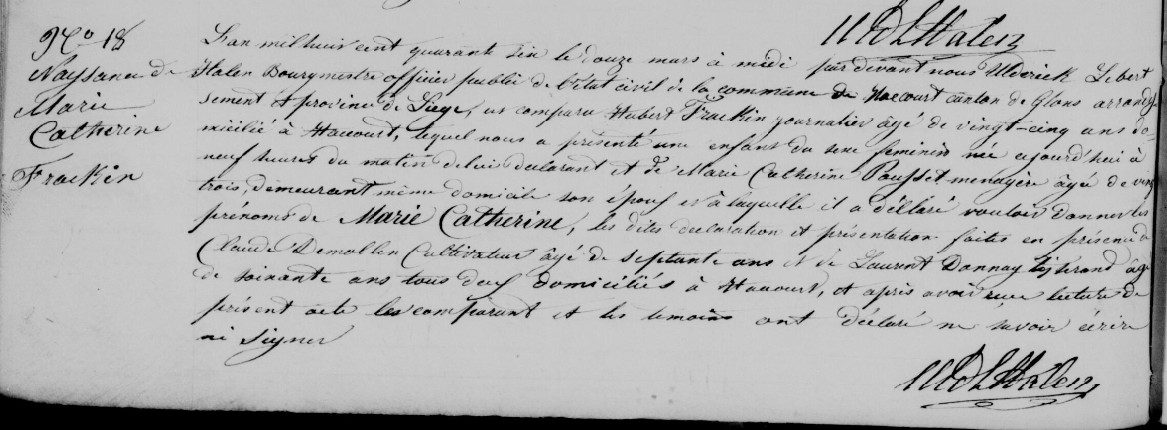 Nº 18
Naissance de
Marie
Catherine
Frackin
L'an mil huit cent quarante six le douze mars à midi pardevant nous Ulderick Lebert
Halen Bourgmestre officier public de l'état civil de la commune de Hacourt canton de Glons arrondis
sement et province de Liege, est comparu Hubert Frackin journalier âgé de vingt-cinq ans do-
micilié à Haccourt, lequel nous a présenté une enfant du sexe feminin née aujourd'hui à
neuf heures du matin de lui declarant et de Marie Catherine Pousset menagère âgée de vingt
trois, demeurant même domicile son épouse et à laquelle il a déclaré vouloir donner les
prénoms de Marie Catherine, les dites declaration et présentation faites en présence de
Claude Demollin Cultivateur âgé de septante ans et de Laurent Donnay tisserand âgé
de soixante ans tous deux domiciliés à Hacourt, et après avoir lecture du
présent acte les comparant et les temoins ont déclaré ne savoir écrire
ni signer